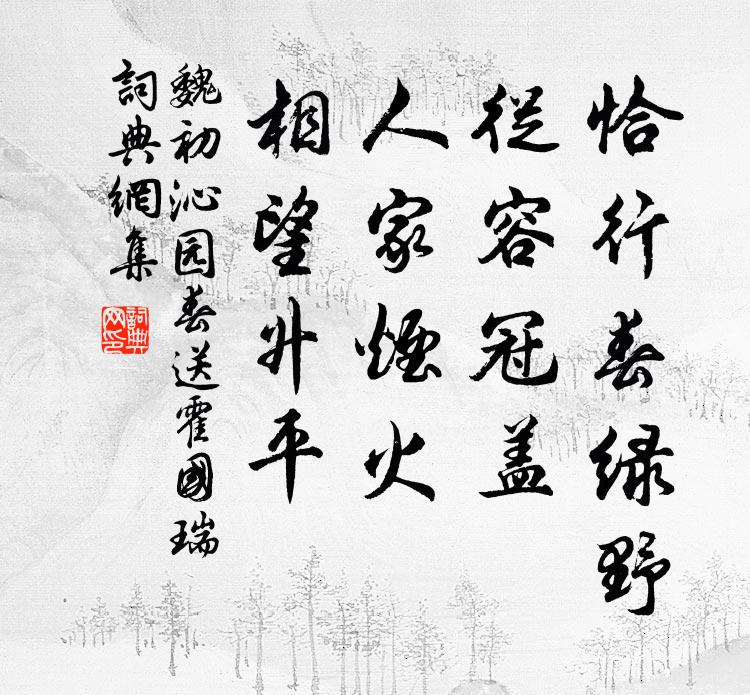 恰行春绿野
從容冠盖
人家煙火
相望升平
魏初沁园春送霍國瑞
詞典網集
詞典網印